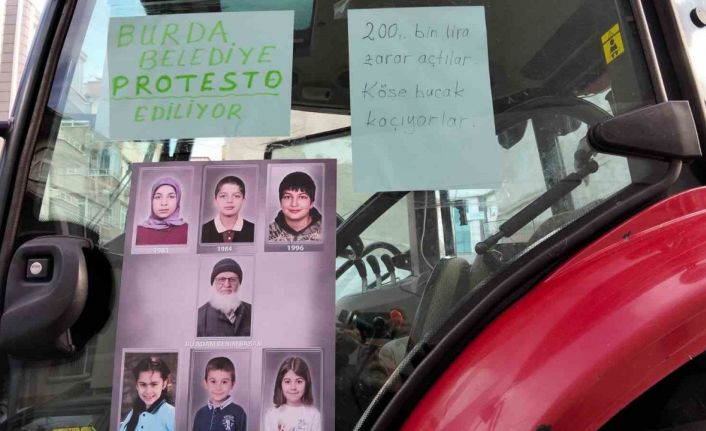 BURDA
BELEDİYE
PROTESTO
EDİLİYOR
200,. bin lira
zarar açtılar.
Köse bucak
kaçıyorlar.
1981 1984 1996
BU ADAM BENİM BABAM